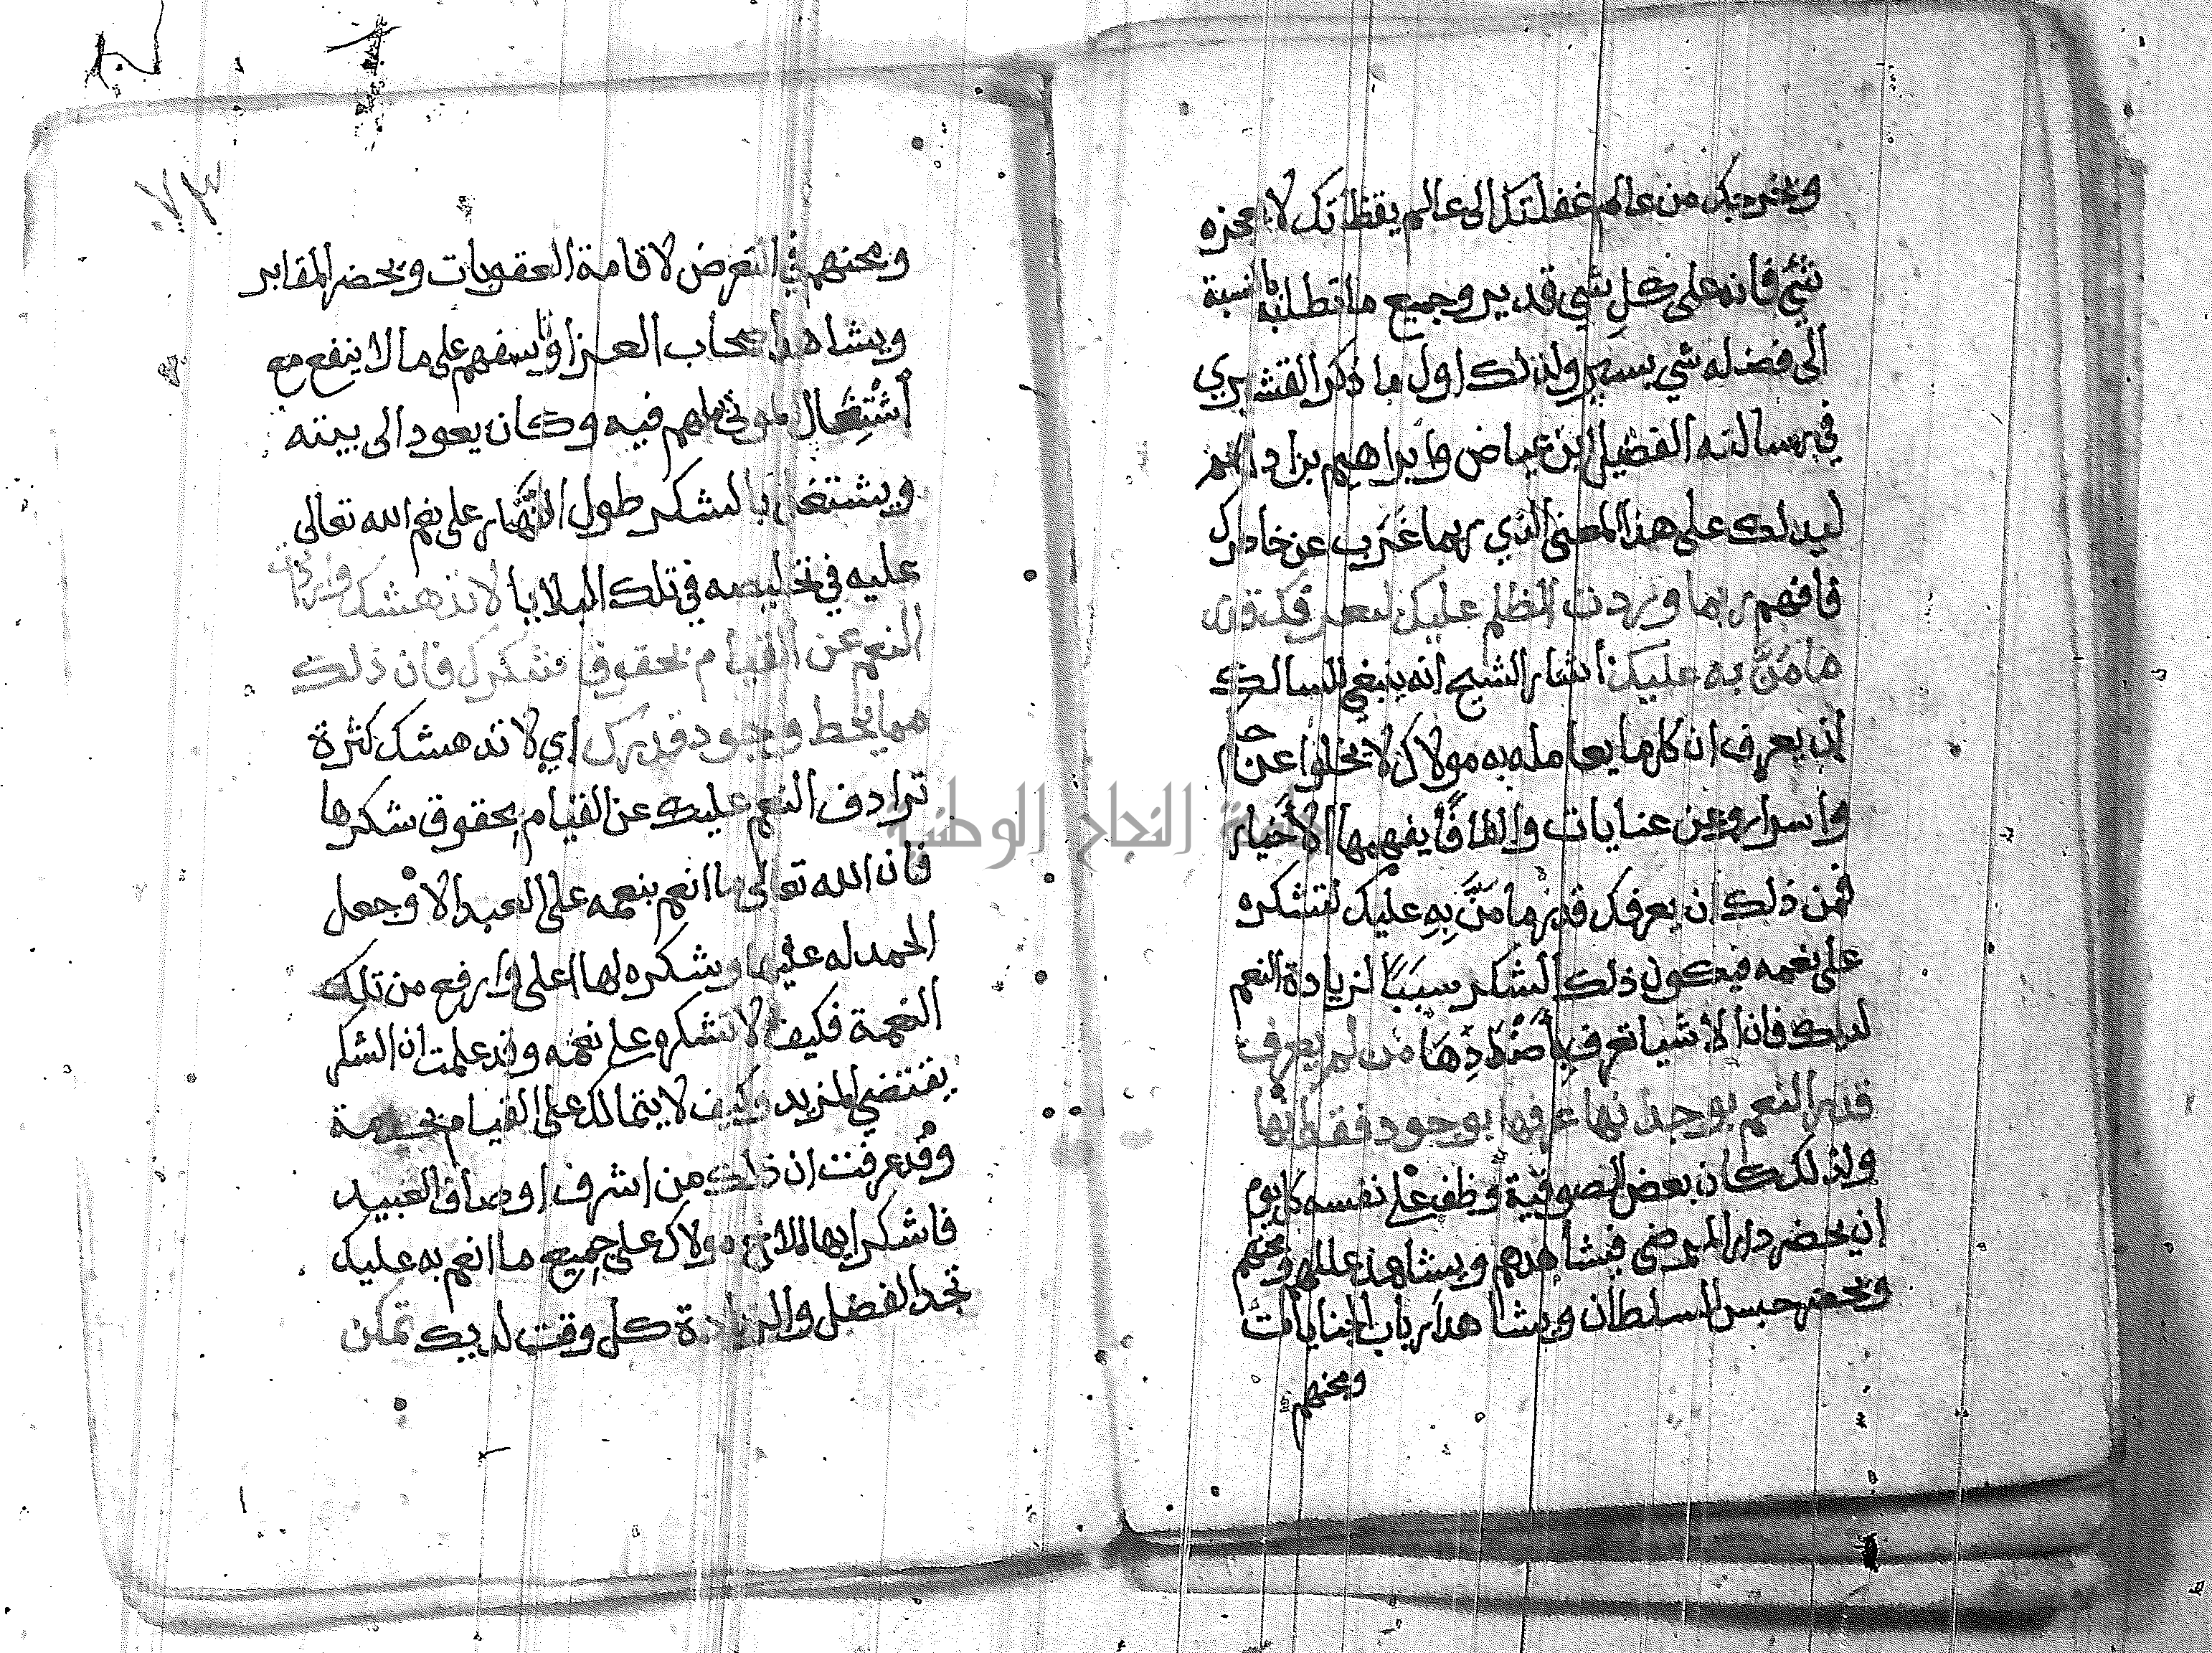 ويخرجك من عالم غفلتك الى عالم يقظاتك لا يعجزه
شي فانه على كل شي قدير وجميع ما تطلبه بالنسبة
الى فضله شي يسير ولذلك اول ما ذكر القشيري
في رسالته الفضيل ابن عياض وابراهيم بن ادهم
ليدلك على هذا المعنى الذي ربما غرب عن خاطرك
فافهم ربما وردت الظلم عليك ليعرفك قدر
ما مَنَّ به عليك اشار الشيخ انه ينبغي للسالك
ان يعرف ان كل ما يعامله به مولاك لا يخلوا عن حكم
واسرار وعن عنايات والطافًا يفهمها الأخيار
فمن ذلك ان يعرفك قدر ما مَنَّ بِهِ عليك لتشكره
على نعمه فيكون ذلك الشكر سببًا لزيادة النعم
لديك فان الأشيا تعرف بِأَضْدَادِهَا من لم يعرف
قدر النعم بوجدانها عرفها بوجود فقدانها
ولذلك كان بعض الصوفية وظف على نفسه كل يوم
ان يحضر دار المرضى فيشاهدهم ويشاهد عللهم ومحنهم
ويحضر حبس السلطان ويشاهد ارباب الجنايات
ومحنهم
٠٧٣
ومحنهم في التعرض لاقامة العقوبات ويحضر المقابر
ويشاهد اصحاب العزا وتأسفهم على ما لا ينفع مع
اشْتِغَال الموتى بما هم فيه وكان يعود الى بيته
ويشتغل بالشكر طول النَّهار على نعم الله تعالى
عليه في تخليصه في تلك البلايا لا تدهشك واردات
النعم عن القيام بحقوق شكرك فان ذلك
مما يحط وجود قدرك اي لا تدهشك كثرة
ترادف النعم عليك عن القيام بحقوق شكرها
فان الله تعالى ما انعم بنعمه على العبد الا وجعل
الحمد له عليها ويشكره لها اعلى وارفع من تلك
النعمة فكيف لا تشكره على نعمه وقد علمت ان الشكر
يقتضي المزيد وكيف لا يتمالك على القيام بخدمة
وقد عرفت ان ذلك من اشرف اوصاف العبيد
فاشكر ايها الملازم مولاك على جميع ما انعم به عليك
تجد الفضل والزيادة كل وقت لديك تمكن
جامعة النجاح الوطنية